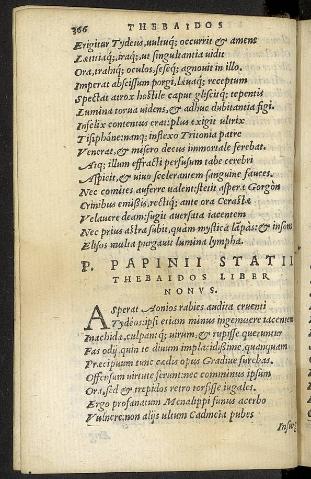 366 THEBAIDOS
Erigitur Tydeus, uultuq; occurrit & amens
Lætitiaq;, iraq;, ut singultantia uidit
Ora, trahiq; oculos, seseq; agnouit in illo.
Imperat abscissum porgi, læuaq; receptum
Spectat atrox hostile caput, gliscitq; tepentis
Lumina torua uidens, & adhuc dubitantia figi.
Infelix contentus erat: plus exigit ultrix
Tisiphone: namq; inflexo Tritonia patre
Venerat, & misero decus immortale ferebat.
Atq; illum effracti perfusum tabe cerebri
Aspicit, & uiuo scelerantem sanguine fauces.
Nec comites auferre ualent: stetit aspera Gorgon
Crinibus emissis, rectiq; ante ora Cerastæ
Velauere deam: fugit auersata iacentem
Nec prius astra subit, quàm mystica lāpas: & insons
Elisos multa purgauit lumina lympha.
P. PAPINII STATII
THEBAIDOS LIBER
NONVS.
Asperat Aonios rabies audita cruenti
Tydeos: ipsi etiam minus ingemuere iacentem
Inachidæ, culpantq; uirum, & rupisse queruntur
Fas odij, quin te diuum implacidissime, quanquam
Præcipuum tunc cædis opus Gradiue furebas.
Offensum uirtute ferunt: nec comminus ipsum
Ora, sed & trepidos retro torsisse iugales.
Ergo profanatum Menalippi funus acerbo
Vulnere: non alijs ultum Cadmeia pubes